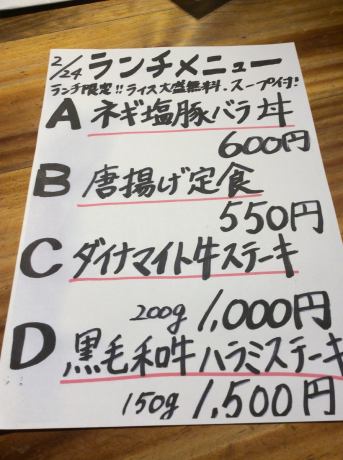 2/24 ランチメニュー
ランチ限定!!ライス大盛無料.スープ付!
A ネギ塩豚バラ丼
600円
B 唐揚げ定食
550円
C ダイナマイト牛ステーキ
200g 1,000円
D 黒毛和牛ハラミステーキ
150g 1,500円